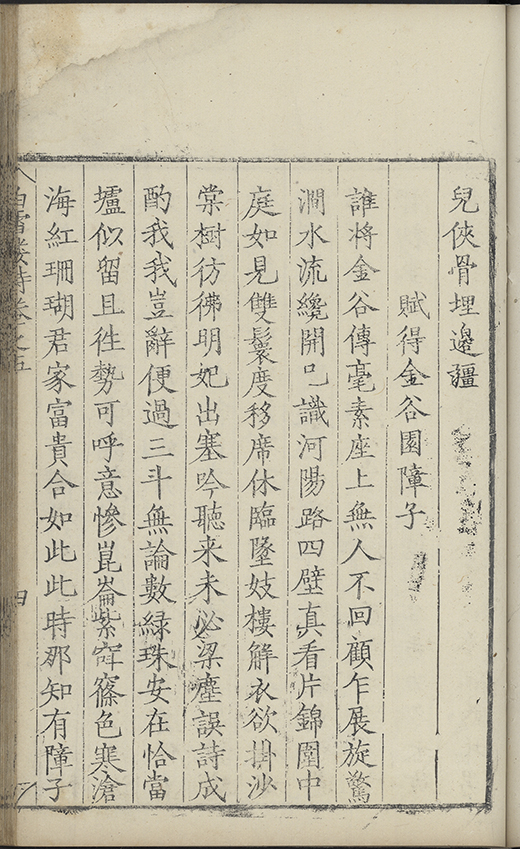 兒俠骨埋邊疆
賦得金谷園障子
誰將金谷傳毫素座上無人不回顧乍展旋驚
澗水流纔開已識河陽路四壁真看片錦圍中
庭如見雙鬟度移席休臨墜妓樓解衣欲掛沙
棠樹彷彿明妃出塞吟聽来未必梁塵誤詩成
酌我我豈辭便過三斗無論數綠珠安在恰當
壚似留且徃勢可呼意慘崑崙紫穽篠色寒滄
海紅珊瑚君家富貴合如此此時那知有障子
白雪樓詩卷之五
四